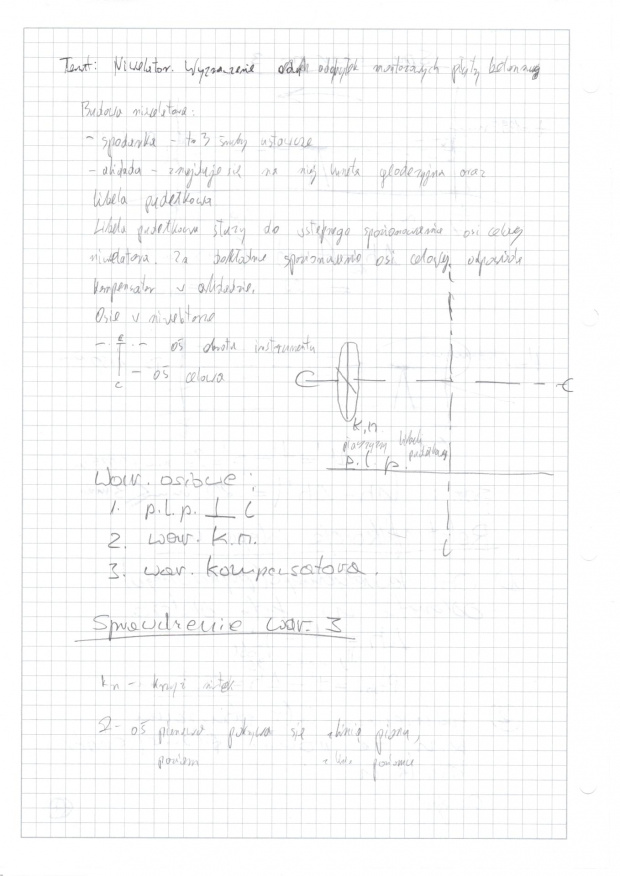 Temat: Niwelator. Wyznaczenie odchyłek montażowych płyty betonowej
Budowa niwelatora:
- spodarka - to 3 śruby ustawcze
- alidada - znajduje się na niej luneta geodezyjna oraz
libela pudełkowa
Libela pudełkowa służy do wstępnego spoziomowania osi celowej
niwelatora. Za dokładne spoziomowanie osi celowej odpowiada
kompensator w alidadzie.
Osie w niwelatorze
- oś obrotu instrumentu
c - oś celowa
C C
K.n
płaszczyzna libeli pudełkowej
p. l. p.
War. osiowe:
1. p.l.p. ⊥ l
2. war. k.n.
3. war. kompensatora.
l
Sprawdzenie war. 3
kn - krzyż nitek
2 - oś pionowa pokrywa się z linią pionu,
poziom